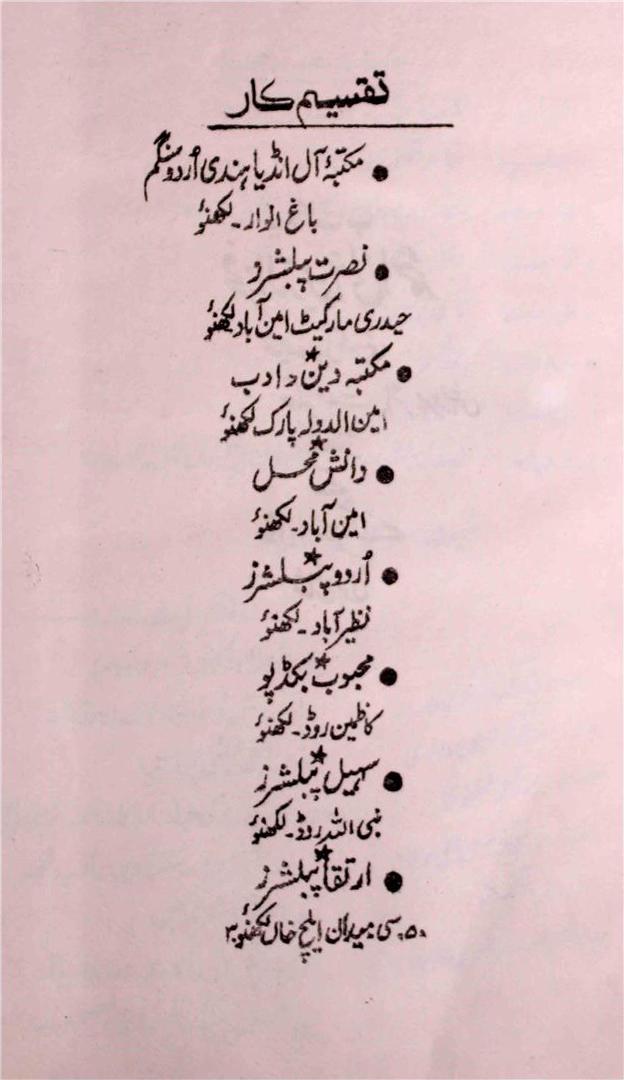 تقسیم کار
● مکتبۂ آل انڈیا ہندی اُردو سنگم
باغ انوار۔ لکھنؤ
● نصرت پبلشرز
حیدری مارکیٹ امین آباد لکھنؤ
● مکتبہ دین و ادب
امین الدولہ پارک لکھنؤ
● دانش محل
امین آباد۔ لکھنؤ
● اُردو پبلشرز
نظیر آباد۔ لکھنؤ
● محبوب بکڈپو
کاظمین روڈ۔ لکھنؤ
● سہیل پبلشرز
نبی اللہ روڈ۔ لکھنؤ
● ارتقا پبلشرز
۵۰ سی میدان ایلچ خاں لکھنؤ ۳